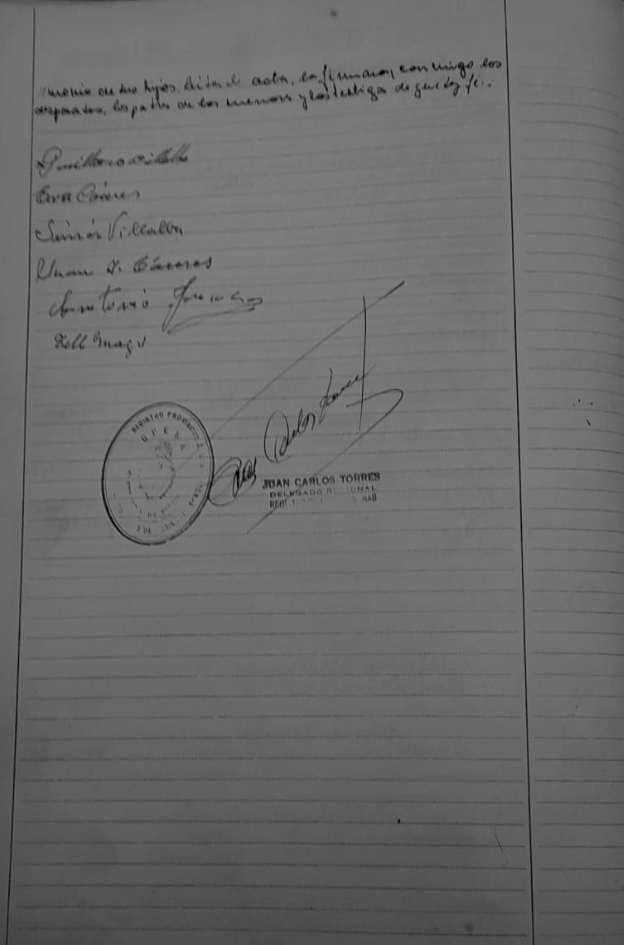 monio de sus hijos, leída el acta, la firmaron conmigo los
desposados, los padres de los menores y los testigos de que doy fé.
Guillermo Villalba
Eva Cáceres
Simón Villalba
Juan I. Cáceres
Antonio
REGISTRO PROVINCIAL
Juan Carlos Torres
JUAN CARLOS TORRES
DELEGADO REGIONAL